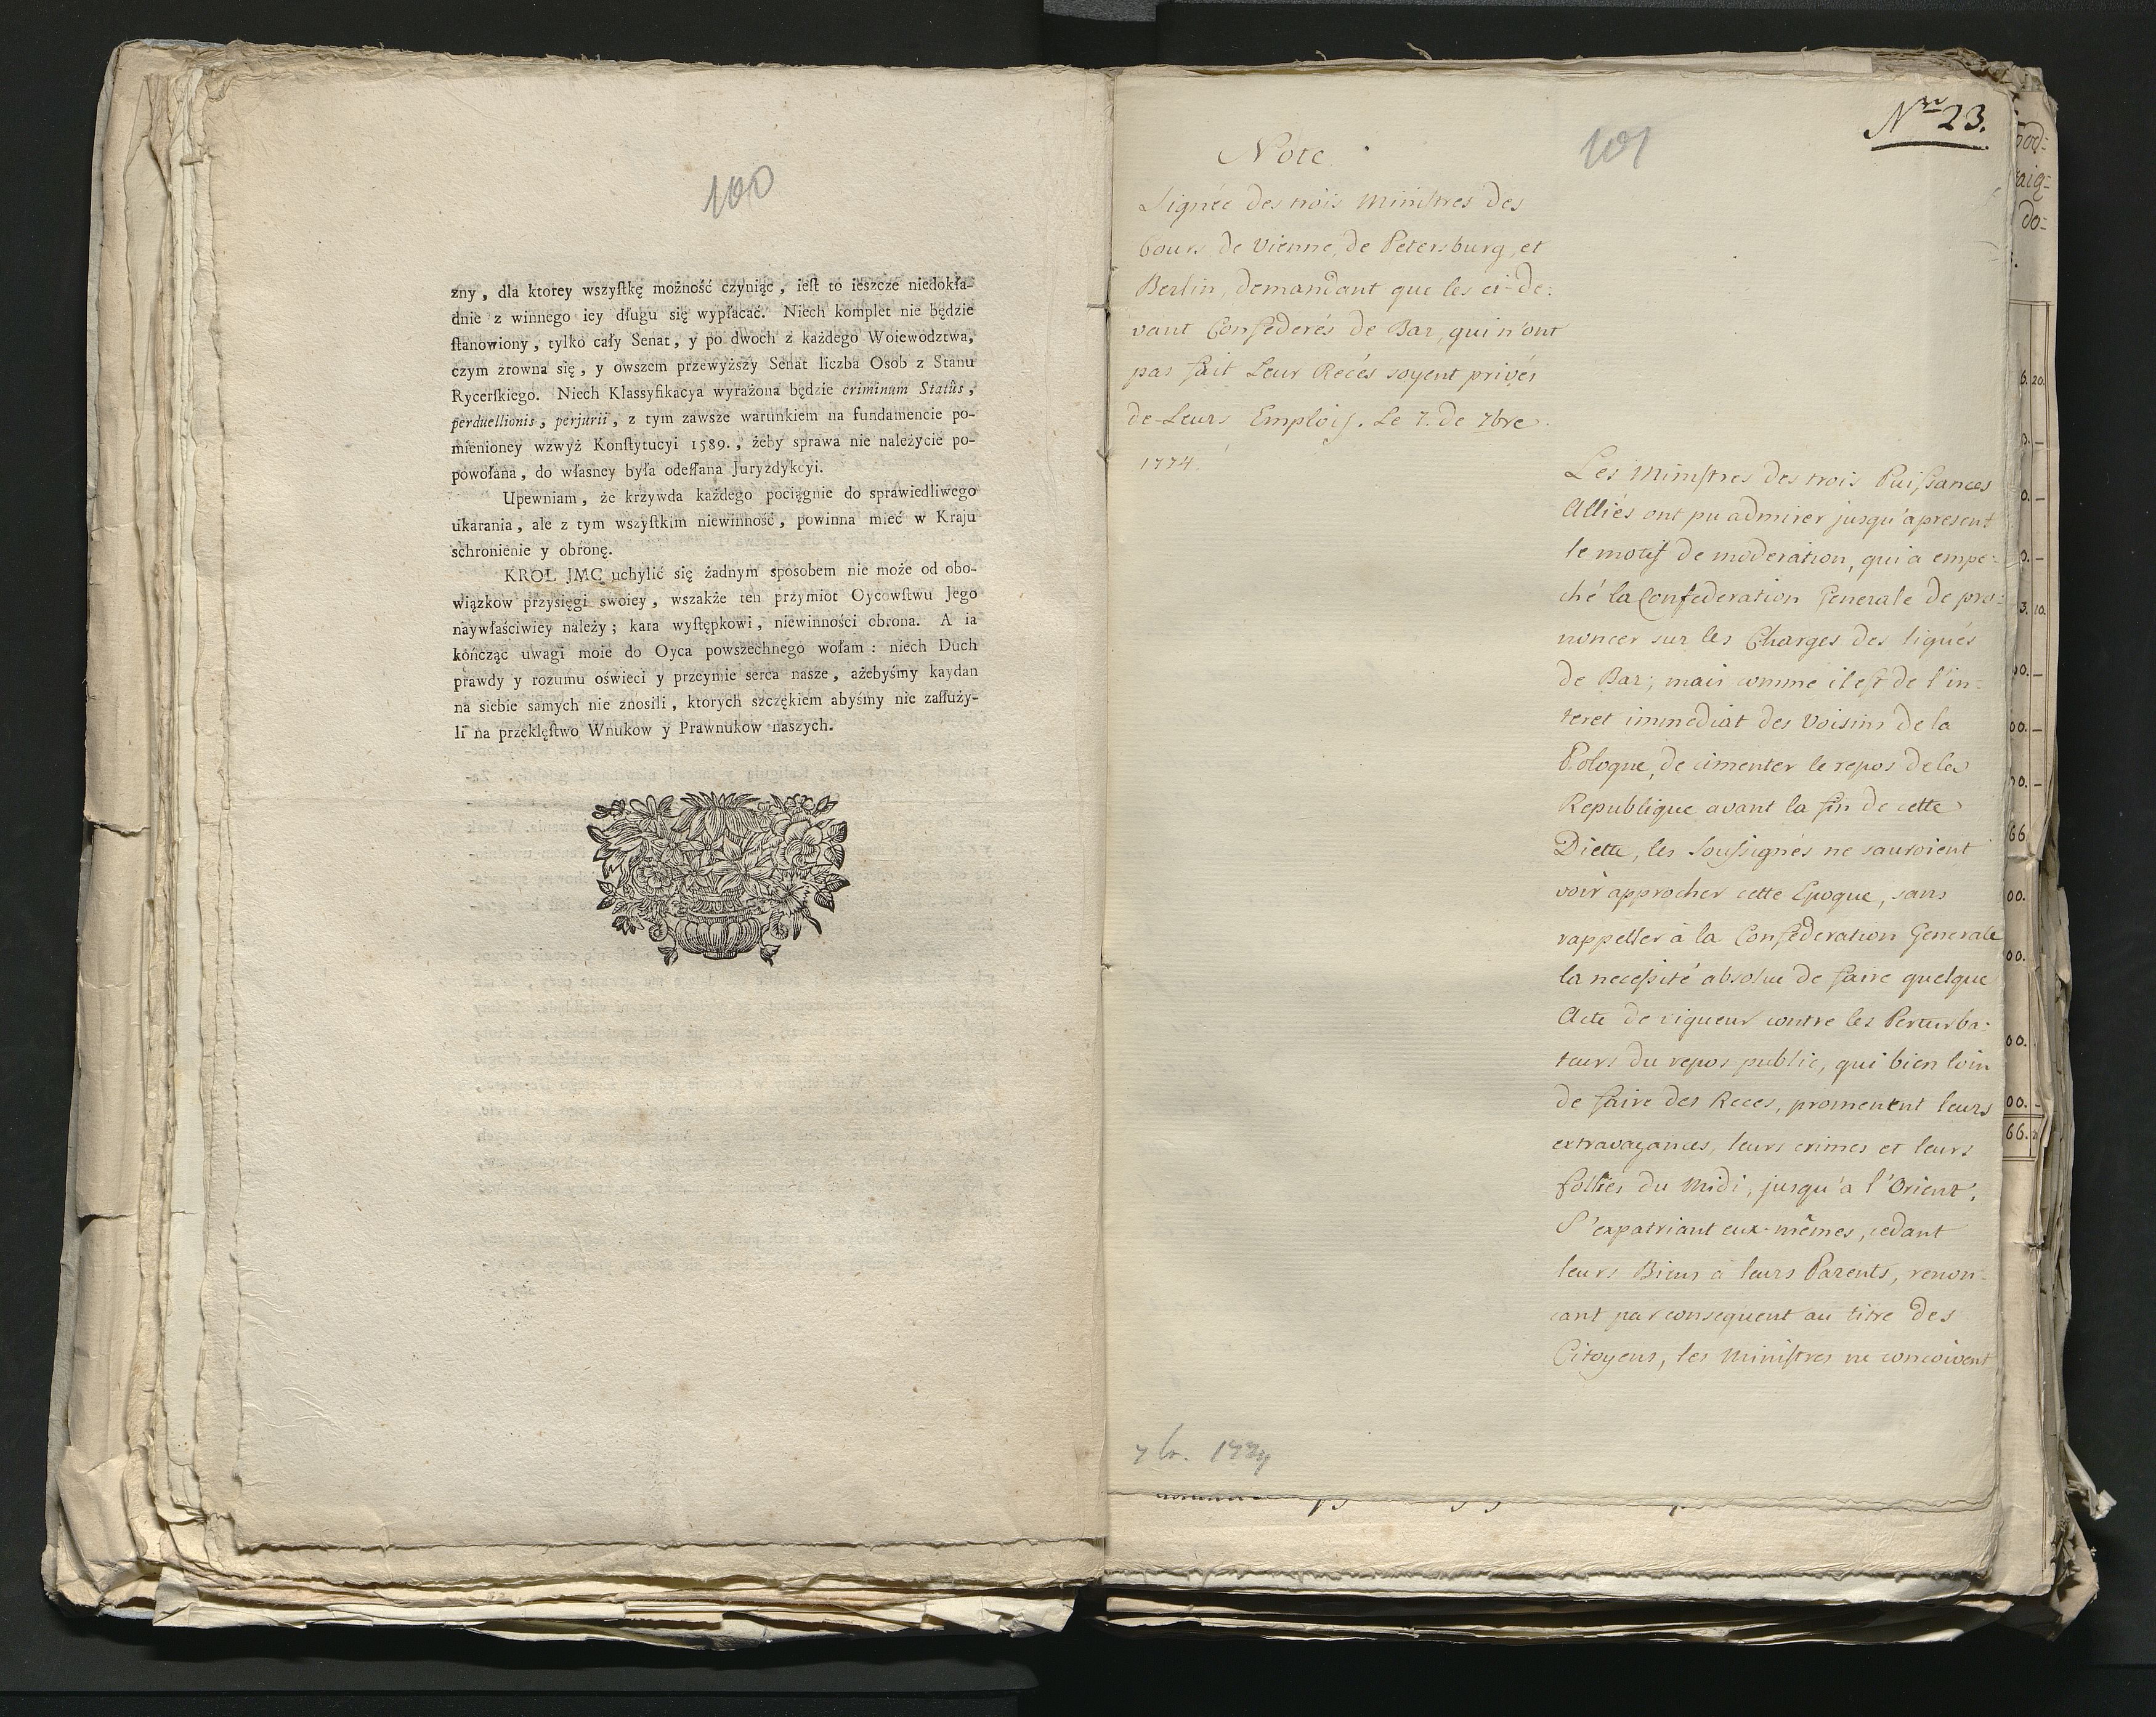 100
zny, dla ktorey wszyſtkę możność czyniąc, ieſt to ieszcze niedokła-
dnie z winnego iey długu się wypłacać. Niech komplet nie będzie
ſtanowiony, tylko cały Senat, y po dwoch z każdego Woiewodztwa,
czym zrowna się, y owszem przewyższy Senat liczba Osob z Stanu
Rycerſkiego. Niech Klassyfikacya wyrażona będzie criminum Statûs,
perduellionis, perjurii, z tym zawsze warunkiem na fundamencie po-
mienioney wzwyż Konſtytucyi 1589., żeby sprawa nie należycie po-
powołana, do własney była odeſłana Juryzdykcyi.
Upewniam, że krzywda każdego pociągnie do sprawiedliwego
ukarania, ale z tym wszyſtkim niewinność, powinna mieć w Kraju
schronienie y obronę.
KROL JMC uchylić się żadnym sposobem nie może od obo-
wiązkow przysięgi swoiey, wszakże ten przymiot Oycowſtwu Jego
naywłaściwiey należy; kara wyſtępkowi, niewinności obrona. A ia
kończąc uwagi moie do Oyca powszechnego wołam: niech Duch
prawdy y rozumu oświeci y przeymie serca nasze, ażebyśmy kaydan
na siebie samych nie znosili, ktorych szczękiem abyśmy nie zaſłuży-
li na przeklęſtwo Wnukow y Prawnukow naszych.
Nro 23.
101
Note
Signée des trois Ministres des
Cours de Vienne, de Petersburg, et
Berlin, demandant que les ci-de:
vant Confederés de Bar, qui n'ont
pas fait Leur Recés soyent privés
de Leurs Emplois. Le 7. de 7bre.
1774.
Les Ministres des trois Puiſsances
Alliés ont pu admirer jusqu'apresent
le motif de moderation, qui a empe:
ché la Confederation Generale de pro:
noncer sur les Charges des liqués
de Bar; mais comme il eſt de l'in-
teret immediat des Voisins de la
Pologne, de cimenter le repos de la
Republique avant la fin de cette
Diette, les Souſsignés ne sauroient
voir approcher cette Epoque, sans
rappeller à la Confederation Generale
la neceſsité absolue de faire quelque
Acte de rigueur contre les Perturba-
teurs du repos public, qui bien loin
de faire des Reces, promenent leurs
extravagances, leurs crimes et leurs
follies du Midi, jusqu'a l'Orient.
S'expatriant eux-mêmes, cedant
leurs Biens a leurs Parents, renon-
cant par consequent au titre des
Citoyens, les Miniſtres ne concoivent
7 br. 1774